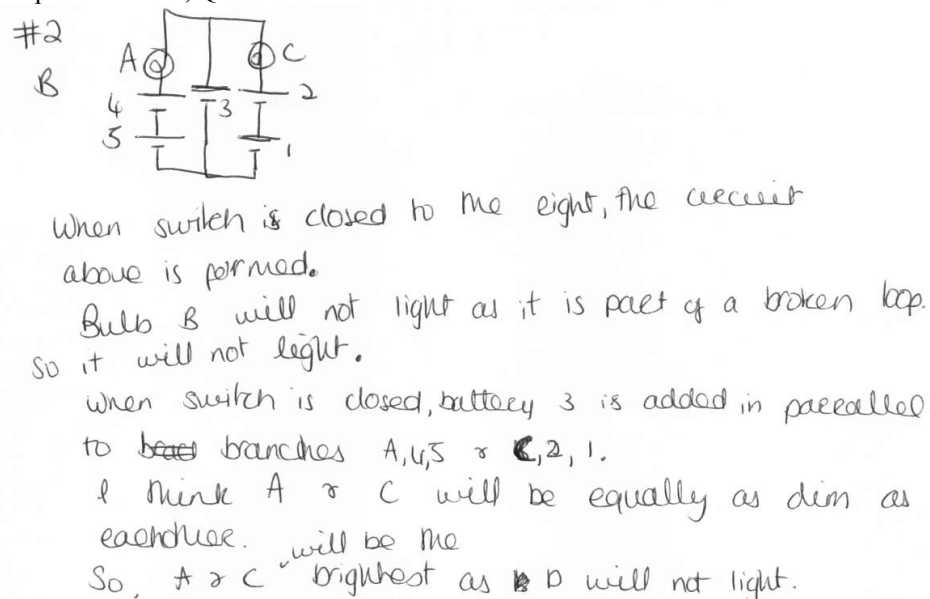 #2
A C
B
4 3 2
5 1
When switch is closed to the right, the circuit
above is formed.
Bulb B will not light as it is part of a broken loop.
So it will not light.
When switch is closed, battery 3 is added in parrallel
to branches A,4,5 & C,2,1.
I think A & C will be equally as dim as
eachother.
will be the
So, A & C brightest as D will not light.